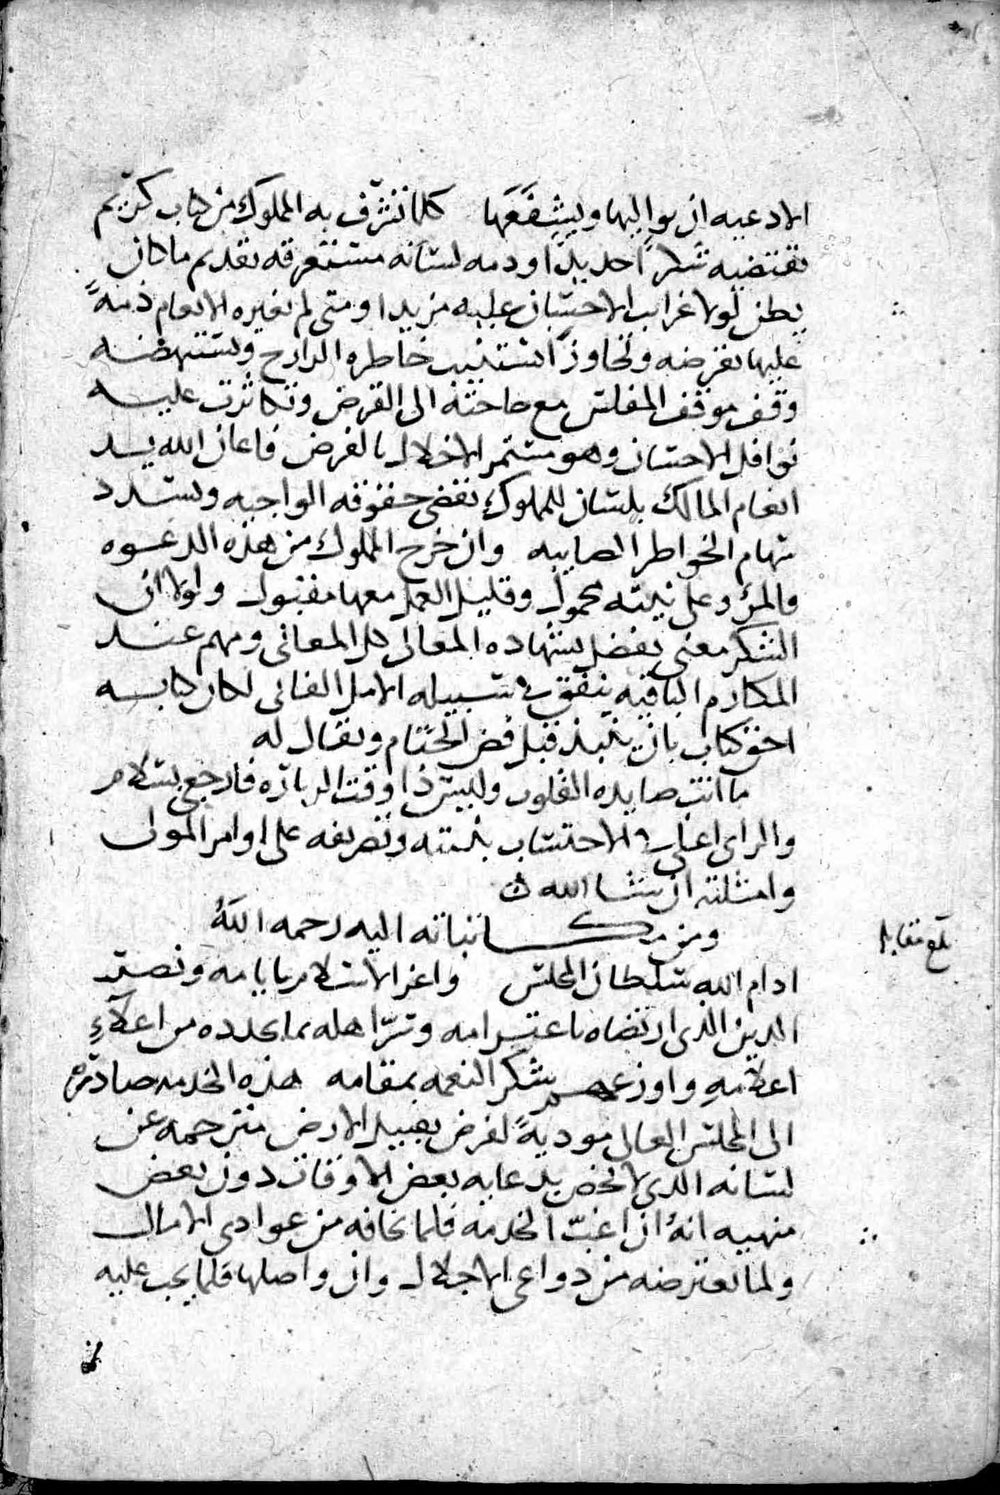 الادعيه ان يواليها ويشفعها كلما تشرف به المملوك من كتاب كريم
تقتضيه شكرا جديدا وذمه لسانه مستغرقه بقديم ما كان
يظن لولا غرايب الاحسان عليه مزيدا ومتى لم تغيره الانعام ذمة
عليها بفرضه وتجاوز استنيب خاطره الرازح ويستنهضه
وقف موقف المفلس مع حاجته الى القرض وتكاثرت عليه
نوافل الاحسان وهو مستمر الاخلال بالفرض فاعان الله يسد
انعام المالك بلسان المملوك بقضى حقوقه الواجبه ويسدد
سهام الخواطر الصايبه وان خرج المملوك من هذه الدعوه
فالمرؤ على نيته محمول وقليل العمل معها مقبول ولولا ان
الشكر معنى يفضل بشهاده المعالى كل المعانى ومهم عند
المكارم الباقيه ينفق فى سبيله الامل الفانى لكان كتابه
احق كتاب بان ينبذ قبل فض الختام ويقال له
ما انت صايده القلوب وليس ذا وقت الزياره فارجعى بسلام
والراى اعلى فى الاحتساب بنيته وتصريفه على اوامر المولى
وامثلته ان شا الله
ومن مكاتباته اليه رحمه الله
ادام الله سلطان المجلس واعز الاسلام بايامه ونصر
الدين الذى ارتضاه باعتزامه وسر اهله بما يجدده من اعلاء
اعلامه واوزعهم شكر النعمه بمقامه هذه الخدمه صادره
الى المجلس العالى مودية لفرض تقبيل الارض مترجمه عن
لسانه الذى لا تخص بدعايه بعض الاوقات دون بعض
منهيه انه ان اغب الخدمه فلما يخافه من عوادى الاملال
ولما تعترضه من دواعى الاجلال وان واصلها فلما يجب عليه
بلغ مقابله